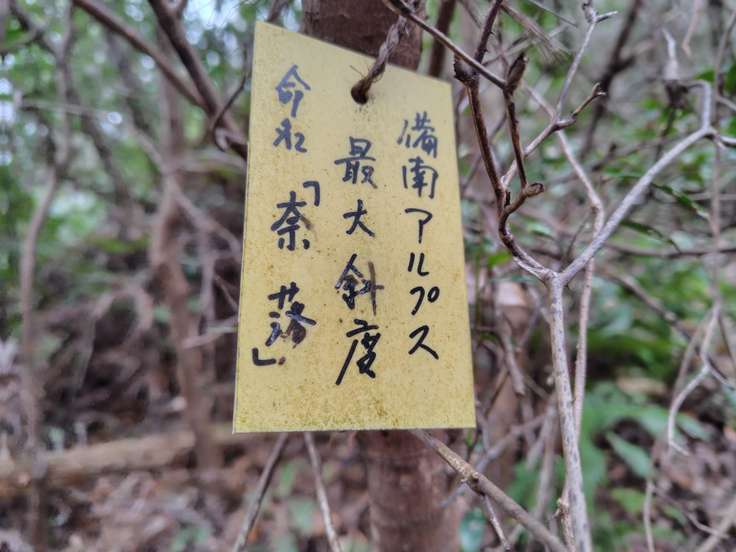 備南アルプス
最大斜度
命名
「奈落」